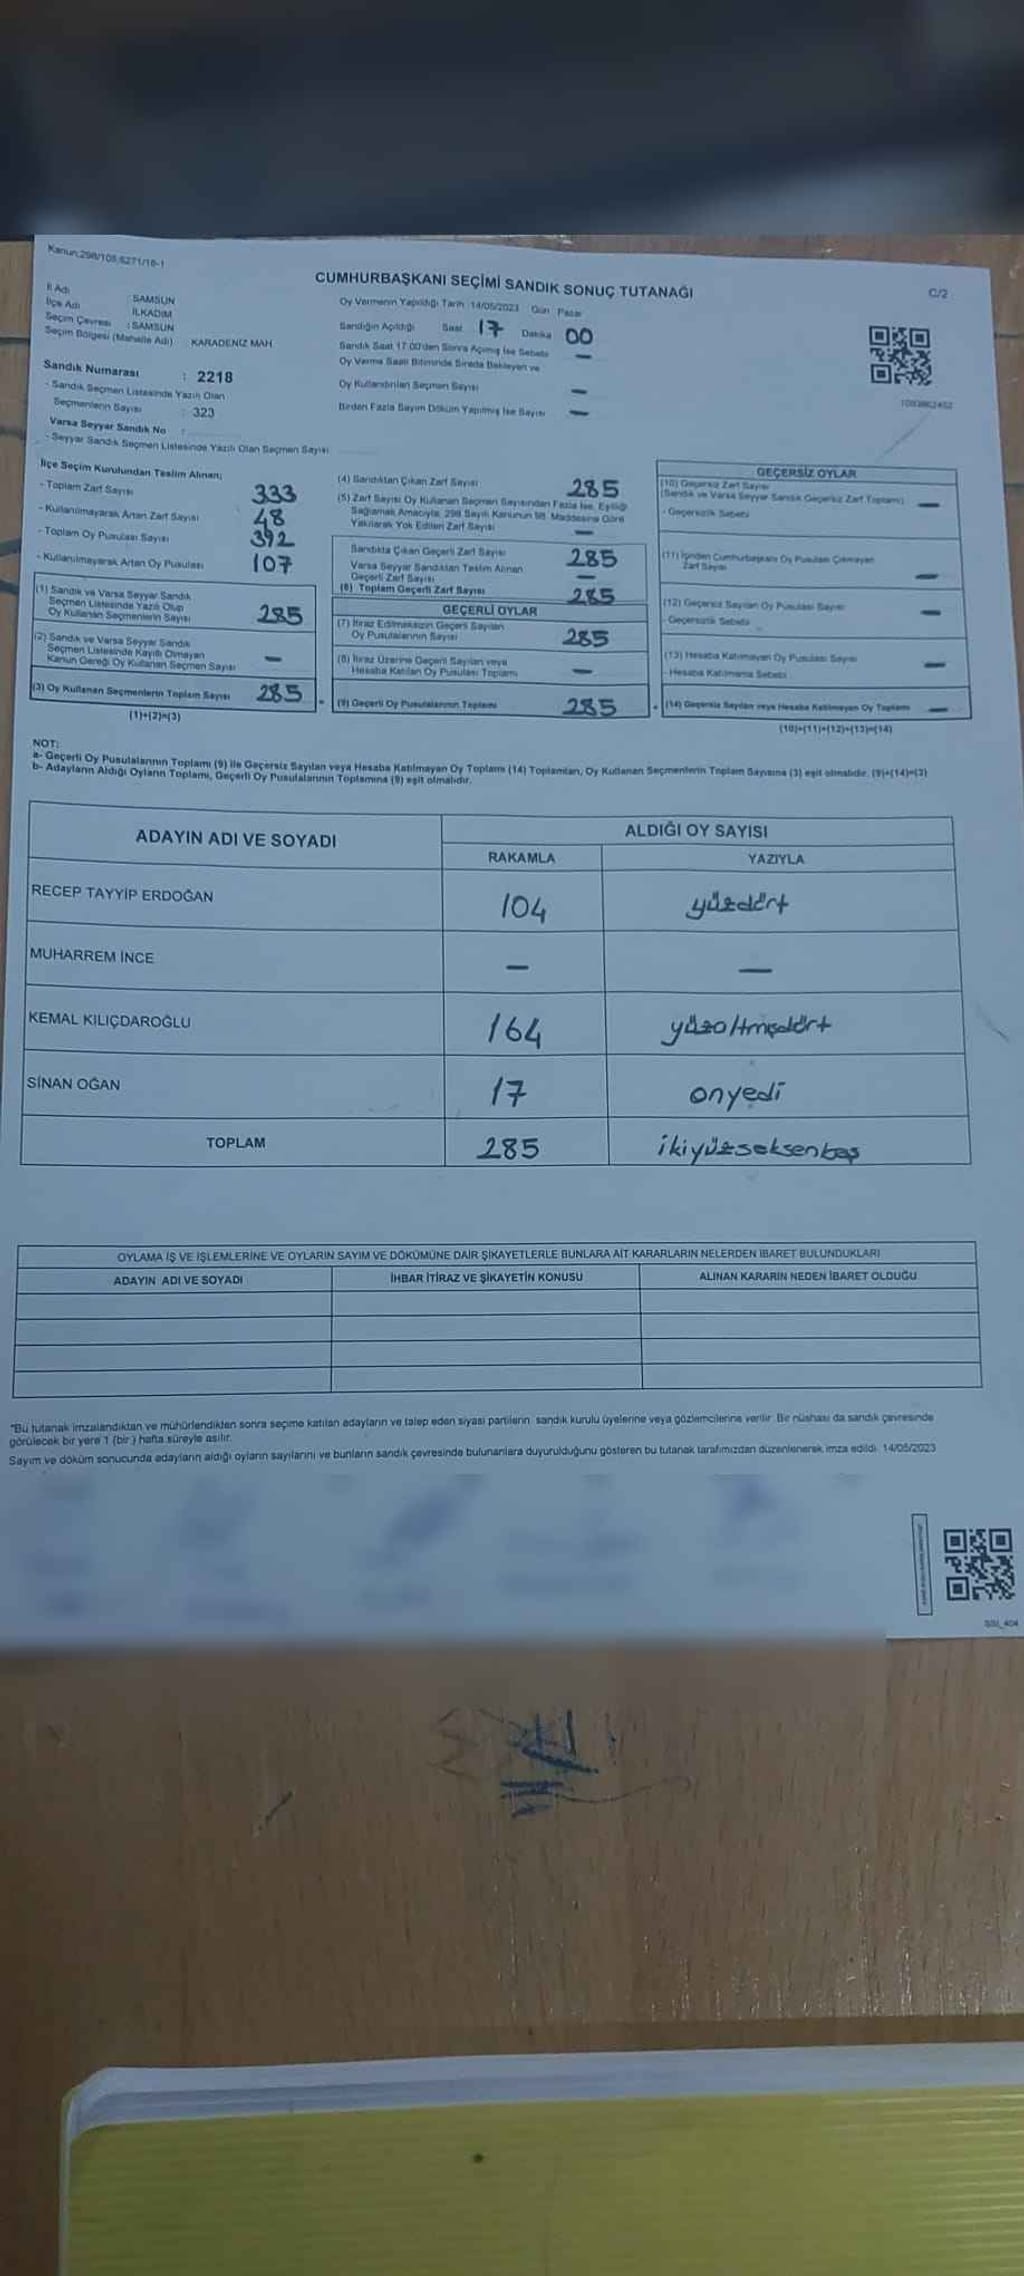 Kanun:298/105,6271/16-1
CUMHURBAŞKANI SEÇİMİ SANDIK SONUÇ TUTANAĞI
C/2
İl Adı : SAMSUN
İlçe Adı : İLKADIM
Seçim Çevresi : SAMSUN
Seçim Bölgesi (Mahalle Adı) KARADENİZ MAH.
Sandık Numarası : 2218
- Sandık Seçmen Listesinde Yazılı Olan
Seçmenlerin Sayısı : 323
Varsa Seyyar Sandık No :
- Seyyar Sandık Seçmen Listesinde Yazılı Olan Seçmen Sayısı
Oy Vermenin Yapıldığı Tarih :14/05/2023 Gün Pazar
Sandığın Açıldığı Saat 17 Dakika 00
Sandık Saat 17.00'den Sonra Açılmış İse Sebebi —
Oy Verme Saati Bitiminde Sırada Bekleyen ve
Oy Kullandırılan Seçmen Sayısı —
Birden Fazla Sayım Döküm Yapılmış İse Sayısı —
İlçe Seçim Kurulundan Teslim Alınan;
- Toplam Zarf Sayısı 333
- Kullanılmayarak Artan Zarf Sayısı 48
- Toplam Oy Pusulası Sayısı 392
- Kullanılmayarak Artan Oy Pusulası 107
(1) Sandık ve Varsa Seyyar Sandık
Seçmen Listesinde Yazılı Olup
Oy Kullanan Seçmenlerin Sayısı 285
(2) Sandık ve Varsa Seyyar Sandık
Seçmen Listesinde Kayıtlı Olmayan
Kanun Gereği Oy Kullanan Seçmen Sayısı —
(3) Oy Kullanan Seçmenlerin Toplam Sayısı 285
(1)+(2)=(3)
(4) Sandıktan Çıkan Zarf Sayısı 285
(5) Zarf Sayısı Oy Kullanan Seçmen Sayısından Fazla İse, Eşitliği
Sağlamak Amacıyla, 298 Sayılı Kanunun 98. Maddesine Göre
Yakılarak Yok Edilen Zarf Sayısı —
Sandıkta Çıkan Geçerli Zarf Sayısı 285
Varsa Seyyar Sandıktan Teslim Alınan
Geçerli Zarf Sayısı —
(6) Toplam Geçerli Zarf Sayısı 285
GEÇERLİ OYLAR
(7) İtiraz Edilmeksizin Geçerli Sayılan
Oy Pusulalarının Sayısı 285
(8) İtiraz Üzerine Geçerli Sayılan veya
Hesaba Katılan Oy Pusulası Toplamı —
(9) Geçerli Oy Pusulalarının Toplamı 285
GEÇERSİZ OYLAR
(10) Geçersiz Zarf Sayısı
(Sandık ve Varsa Seyyar Sandık Geçersiz Zarf Toplamı) —
- Geçersizlik Sebebi
(11) İçinden Cumhurbaşkanı Oy Pusulası Çıkmayan
Zarf Sayısı —
(12) Geçersiz Sayılan Oy Pusulası Sayısı —
- Geçersizlik Sebebi
(13) Hesaba Katılmayan Oy Pusulası Sayısı —
- Hesaba Katılmama Sebebi
(14) Geçersiz Sayılan veya Hesaba Katılmayan Oy Toplamı —
(10)+(11)+(12)+(13)=(14)
NOT:
a- Geçerli Oy Pusulalarının Toplamı (9) ile Geçersiz Sayılan veya Hesaba Katılmayan Oy Toplamı (14) Toplamları, Oy Kullanan Seçmenlerin Toplam Sayısına (3) eşit olmalıdır. (9)+(14)=(3)
b- Adayların Aldığı Oyların Toplamı, Geçerli Oy Pusulalarının Toplamına (9) eşit olmalıdır.
ADAYIN ADI VE SOYADI
ALDIĞI OY SAYISI
RAKAMLA YAZIYLA
RECEP TAYYİP ERDOĞAN 104 yüzdört
MUHARREM İNCE — —
KEMAL KILIÇDAROĞLU 164 yüzaltmışdört
SİNAN OĞAN 17 onyedi
TOPLAM 285 ikiyüzseksenbeş
OYLAMA İŞ VE İŞLEMLERİNE VE OYLARIN SAYIM VE DÖKÜMÜNE DAİR ŞİKAYETLERLE BUNLARA AİT KARARLARIN NELERDEN İBARET BULUNDUKLARI
ADAYIN ADI VE SOYADI İHBAR İTİRAZ VE ŞİKAYETİN KONUSU ALINAN KARARIN NEDEN İBARET OLDUĞU
*Bu tutanak imzalandıktan ve mühürlendikten sonra seçime katılan adayların ve talep eden siyasi partilerin sandık kurulu üyelerine veya gözlemcilerine verilir. Bir nüshası da sandık çevresinde
görülecek bir yere 1 (bir) hafta süreyle asılır.
Sayım ve döküm sonucunda adayların aldığı oyların sayılarını ve bunların sandık çevresinde bulunanlara duyurulduğunu gösteren bu tutanak tarafımızdan düzenlenerek imza edildi. 14/05/2023